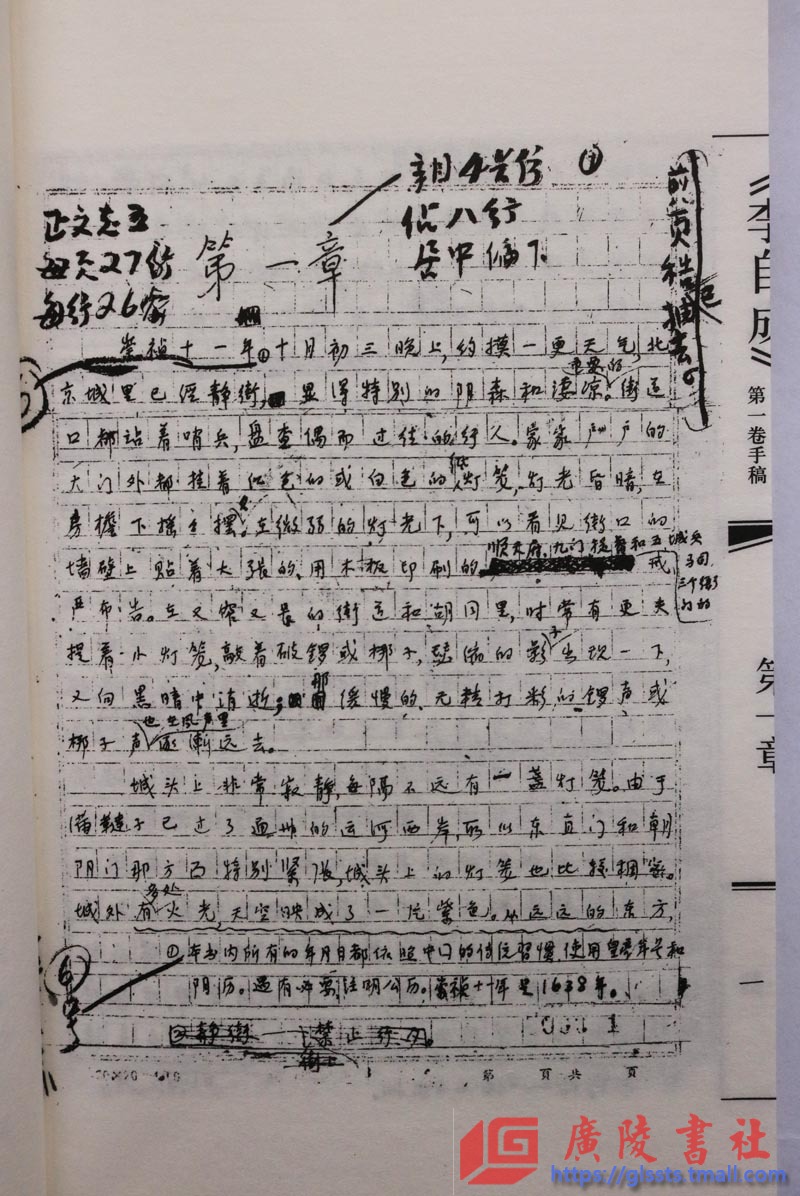 新4号仿
①
占八行
居中偏下
正文老五
每页27行
每行26字
前页码抽去
第一章
崇祯十一年①十月初三晚上,约摸一更天气,北
京城里已经静街,显得特别的阴森和凄凉。街道
口都站着哨兵,盘查偶而过往的行人。家家户户的
大门外都挂着红色的或白色的纸灯笼,灯光昏暗,在
房檐下摇摇摆摆。在微弱的灯光下,可以看见街口的
墙壁上贴着大张的、用木板印刷的戒
严布告。在又窄又长的街道和胡同里,时常有更夫
提着小灯笼,敲着破锣或梆子,瑟缩的影子出现一下,
又向黑暗中消逝;那缓慢的、无精打彩的锣声或
梆子声也在风声里逐渐远去。
城头上非常寂静,每隔不远有一盏灯笼。由于
满鞑子已过了通州的运河西岸,所以东直门和朝
阴门那方面特别紧张,城头上的灯笼也比较稠密。
城外有多处火光,天空映成了一片紫色。从远远的东方,
①本书内所有的年月日都依照中国的传统习惯,使用皇帝年号和
阴历。遇有必要,注明公历。崇祯十一年是1638年。
②静街——禁止行人。
20×20
第 页 共 页
《李自成》
第一卷手稿
第一章
一
廣陵書社
https://glssts.tmall.com